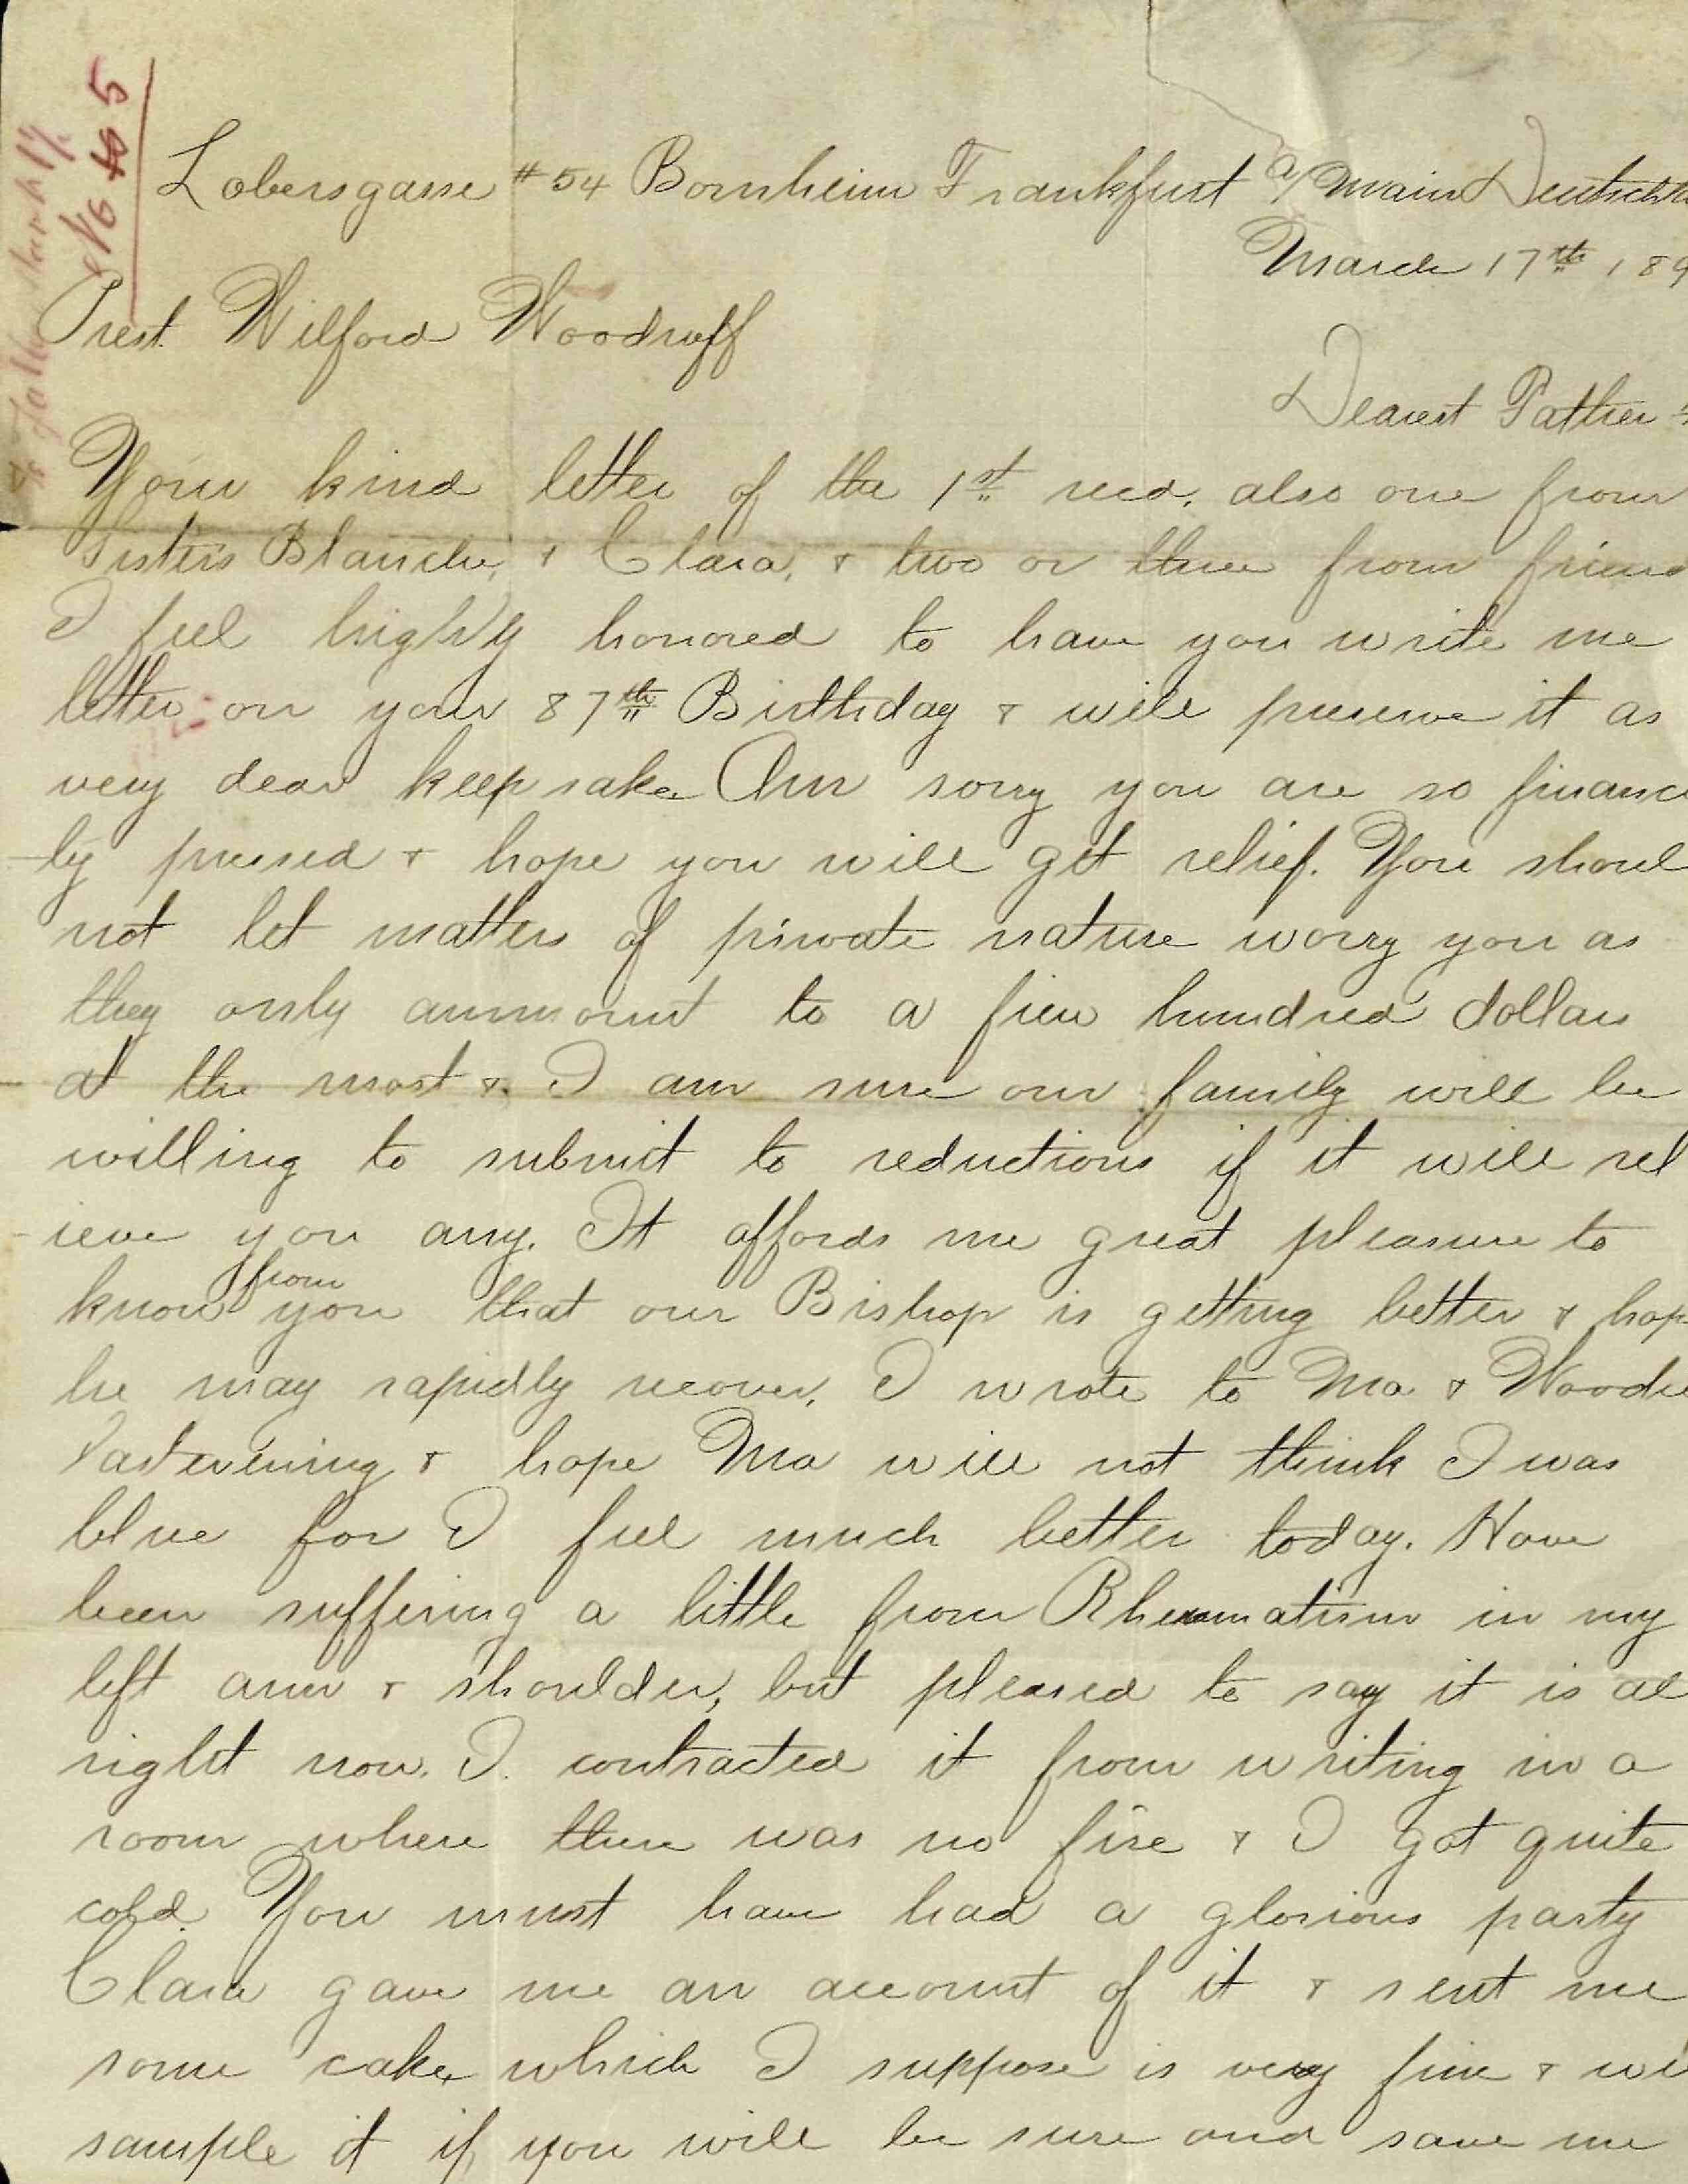 No 5
Lobersgasse #54 Bornheim Frankfurt a/Main Deutschl
March 17th 189
Prest. Wilford Woodruff
Dearest Father
Your kind letter of the 1st recd, also one from
Sisters Blanche, & Clara, & two or three from friend
I feel highly honored to have you write me
letter on your 87th Birthday & will preserve it as
very dear keepsake Am sorry you are so financi
-ly pressed & hope you will get relief. You shoul
not let matters of private nature worry you as
they only ammount to a few hundred dollars
at the most & I am sure our family will be
willing to submit to reductions if it will rel
-ieve you any. It affords me great pleasure to
know from you that our Bishop is getting better & hop
he may rapidly recover. I wrote to Ma & Woodru
last evening & hope Ma will not think I was
blue for I feel much better today. Have
been suffering a little from Rheumatism in my
left arm & shoulder, but pleased to say it is al
right now. I contracted it from writing in a
room where there was no fire & I got quite
cold. You must have had a glorious party
Clara gave me an account of it & sent me
some cake which I suppose is very fine & wi
sample it if you will be sure and save me